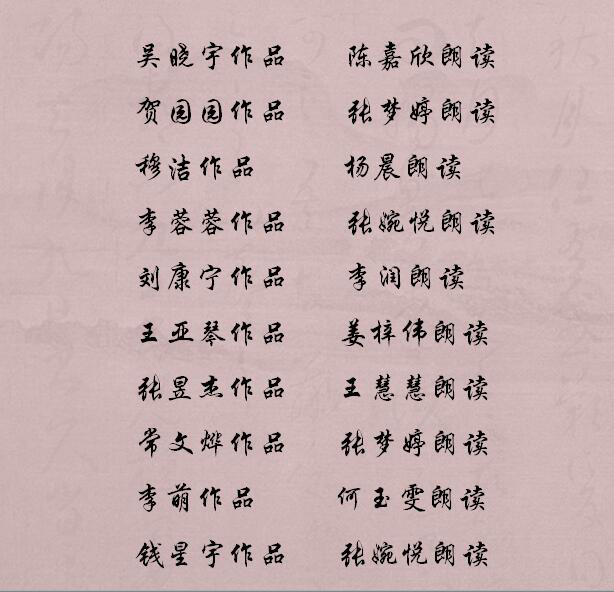 吴晓宇作品 陈嘉欣朗读
贺园园作品 张梦婷朗读
穆洁作品 杨晨朗读
李蓉蓉作品 张婉悦朗读
刘康宁作品 李润朗读
王亚琴作品 姜梓伟朗读
张昱杰作品 王慧慧朗读
常文烨作品 张梦婷朗读
李萌作品 何玉雯朗读
钱星宇作品 张婉悦朗读